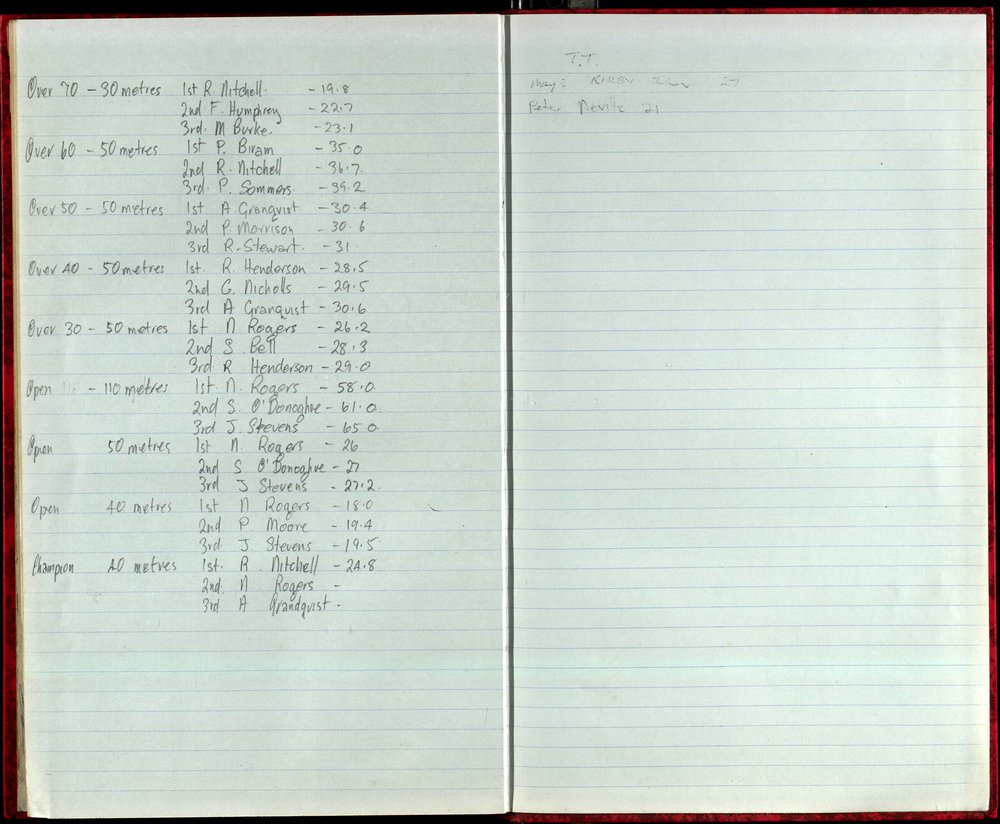 Over 70 - 30 metres 1st R. Nitchell. - 19.8
2nd F. Humphrey - 22.7
3rd. M Burke. - 23.1
Over 60 - 50 metres 1st P. Biram - 35.0
2nd R. Nitchell - 36.7.
3rd. P. Sommers. - 39.2
Over 50 - 50 metres 1st A. Granquist. - 30.4
2nd P. Morrison - 30.6
3rd R. Stewart. - 31.
Over 40 - 50 metres 1st. R. Henderson - 28.5
2nd G. Nicholls - 29.5
3rd A Granquist - 30.6
Over 30 - 50 metres 1st N Rogers - 26.2
2nd S Bell - 28.3
3rd R Henderson - 29.0
Open - 110 metres 1st. N. Rogers - 58.0
2nd S. O'Donoghue - 61.0
3rd J. Stevens - 65.0
Open 50 metres 1st N. Rogers - 26
2nd S O'Donoghue - 27
3rd J Stevens - 27.2.
Open 40 metres 1st N Rogers - 18.0
2nd P. Moore - 19.4
3rd. J. Stevens - 19.5.
Champion 40 metres 1st. R. Nitchell - 24.8
2nd. N Rogers -
3rd A Grandquist -
T.T.
KIRBY 27
Peter Neville 21